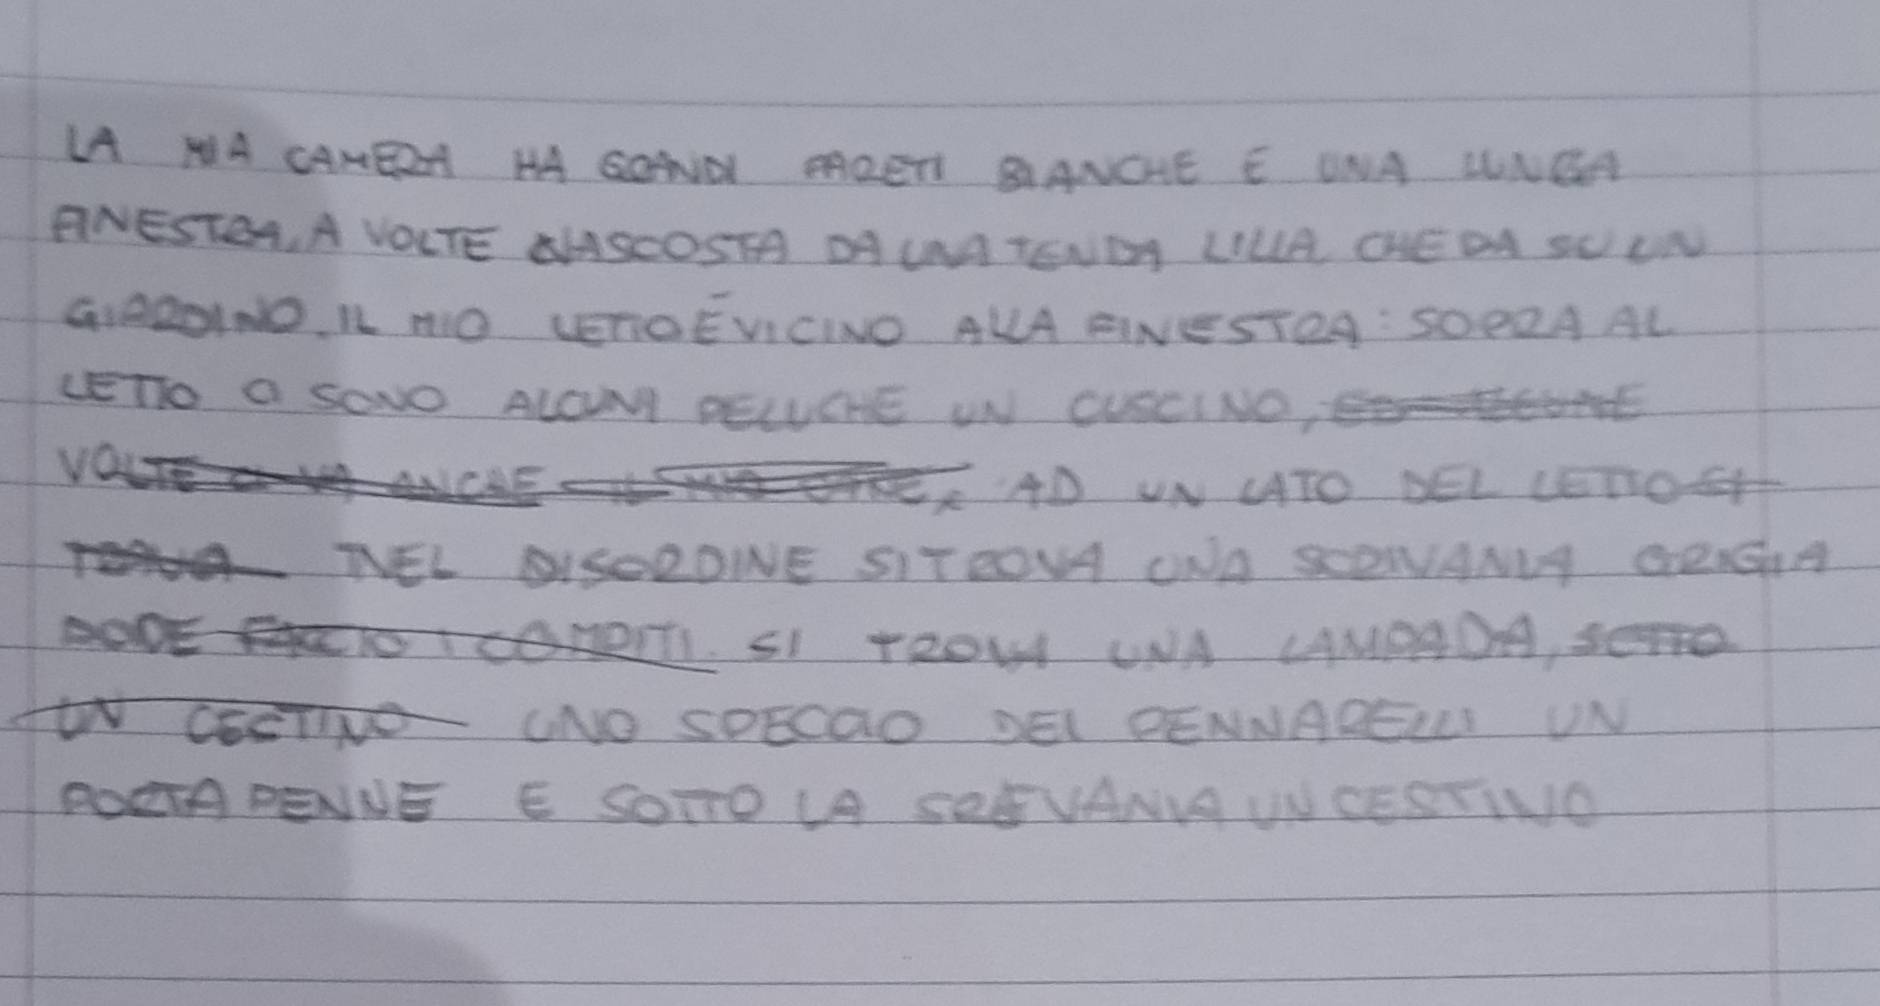 LA MIA CAMERA HA GRANDI PARETI BIANCHE E UNA LUNGA
FINESTRA, A VOLTE NASCOSTA DA UNA TENDA LILLA CHE DA SU UN
GIARDINO. IL MIO LETTO É VICINO ALLA FINESTRA: SOPRA AL
LETTO CI SONO ALCUNI PELUCHE UN CUSCINO,
VOLTE CI VA ANCHE IL MIO CANE, AD UN LATO DEL LETTO SI
TROVA NEL DISORDINE SI TROVA UNA SCRIVANIA GRIGIA
DODE FACCIO I COMPITI. SI TROVA UNA LAMPADA, SOTTO
UN CESTINO UNO SPECCIO DEI PENNARELLI UN
PORTA PENNE E SOTTO LA SREVANIA UN CESTINO